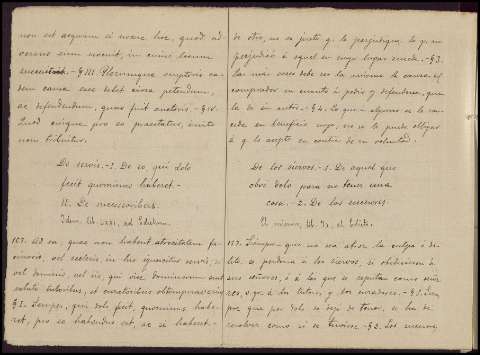 non est aequum ei nocere hoc, quod ad-
versus eum nocuit, in cuius locum
successit.- § III. Plerumque emptoris ea-
dem causa esse debet circa petendum,
ac defendendum, quae fuit auctoris.- § IV.
Quod cuique pro eo praestatur, invito
non tribuitur.
De servis.- I. De eo, qui dolo
fecit quominus haberet.-
II. De successoribus.
Idem, lib. LXXI, ad Edictum.
157. Ad ea, quae non habent atrocitatem fa-
cinoris, vel sceleris, in his ignoscitur servis, si
vel dominis, vel iis, qui vice dominorum sunt
veluti tutoribus, et curatoribus obtemperaverint
§ I. Semper, qui dolo fecit, quominus habe-
ret, pro eo habendus est, ac si haberet.-
de otro, no es justo q. le perjudique, lo q. no
perjudicó á aquel en cuyo lugar sucede.- § 3.
Las mas veces debe ser la misma la causa del
comprador en cuanto á pedir y defenderse, que
la de su autor.- § 4. Lo que á alguno se le con-
cede en beneficio suyo, no se le puede obligar
á q. lo acepte en contra de su voluntad.
De los siervos.- 1. De aquel que
obró dolo para no tener una
cosa.- 2. De los sucesores.
El mismo, lib. 71, al Edicto.
157. Siempre que no sea atroz la culpa ó de-
lito, se perdona á los siervos, si obedecieron á
sus señores, ó á los que se reputan como seño-
res, v. gr. á los tutores y los curadores.- § 1. Siem
pre que por dolo se deje de tener, se ha de
resolver como si se tuviese.- § 2. Los sucesores,